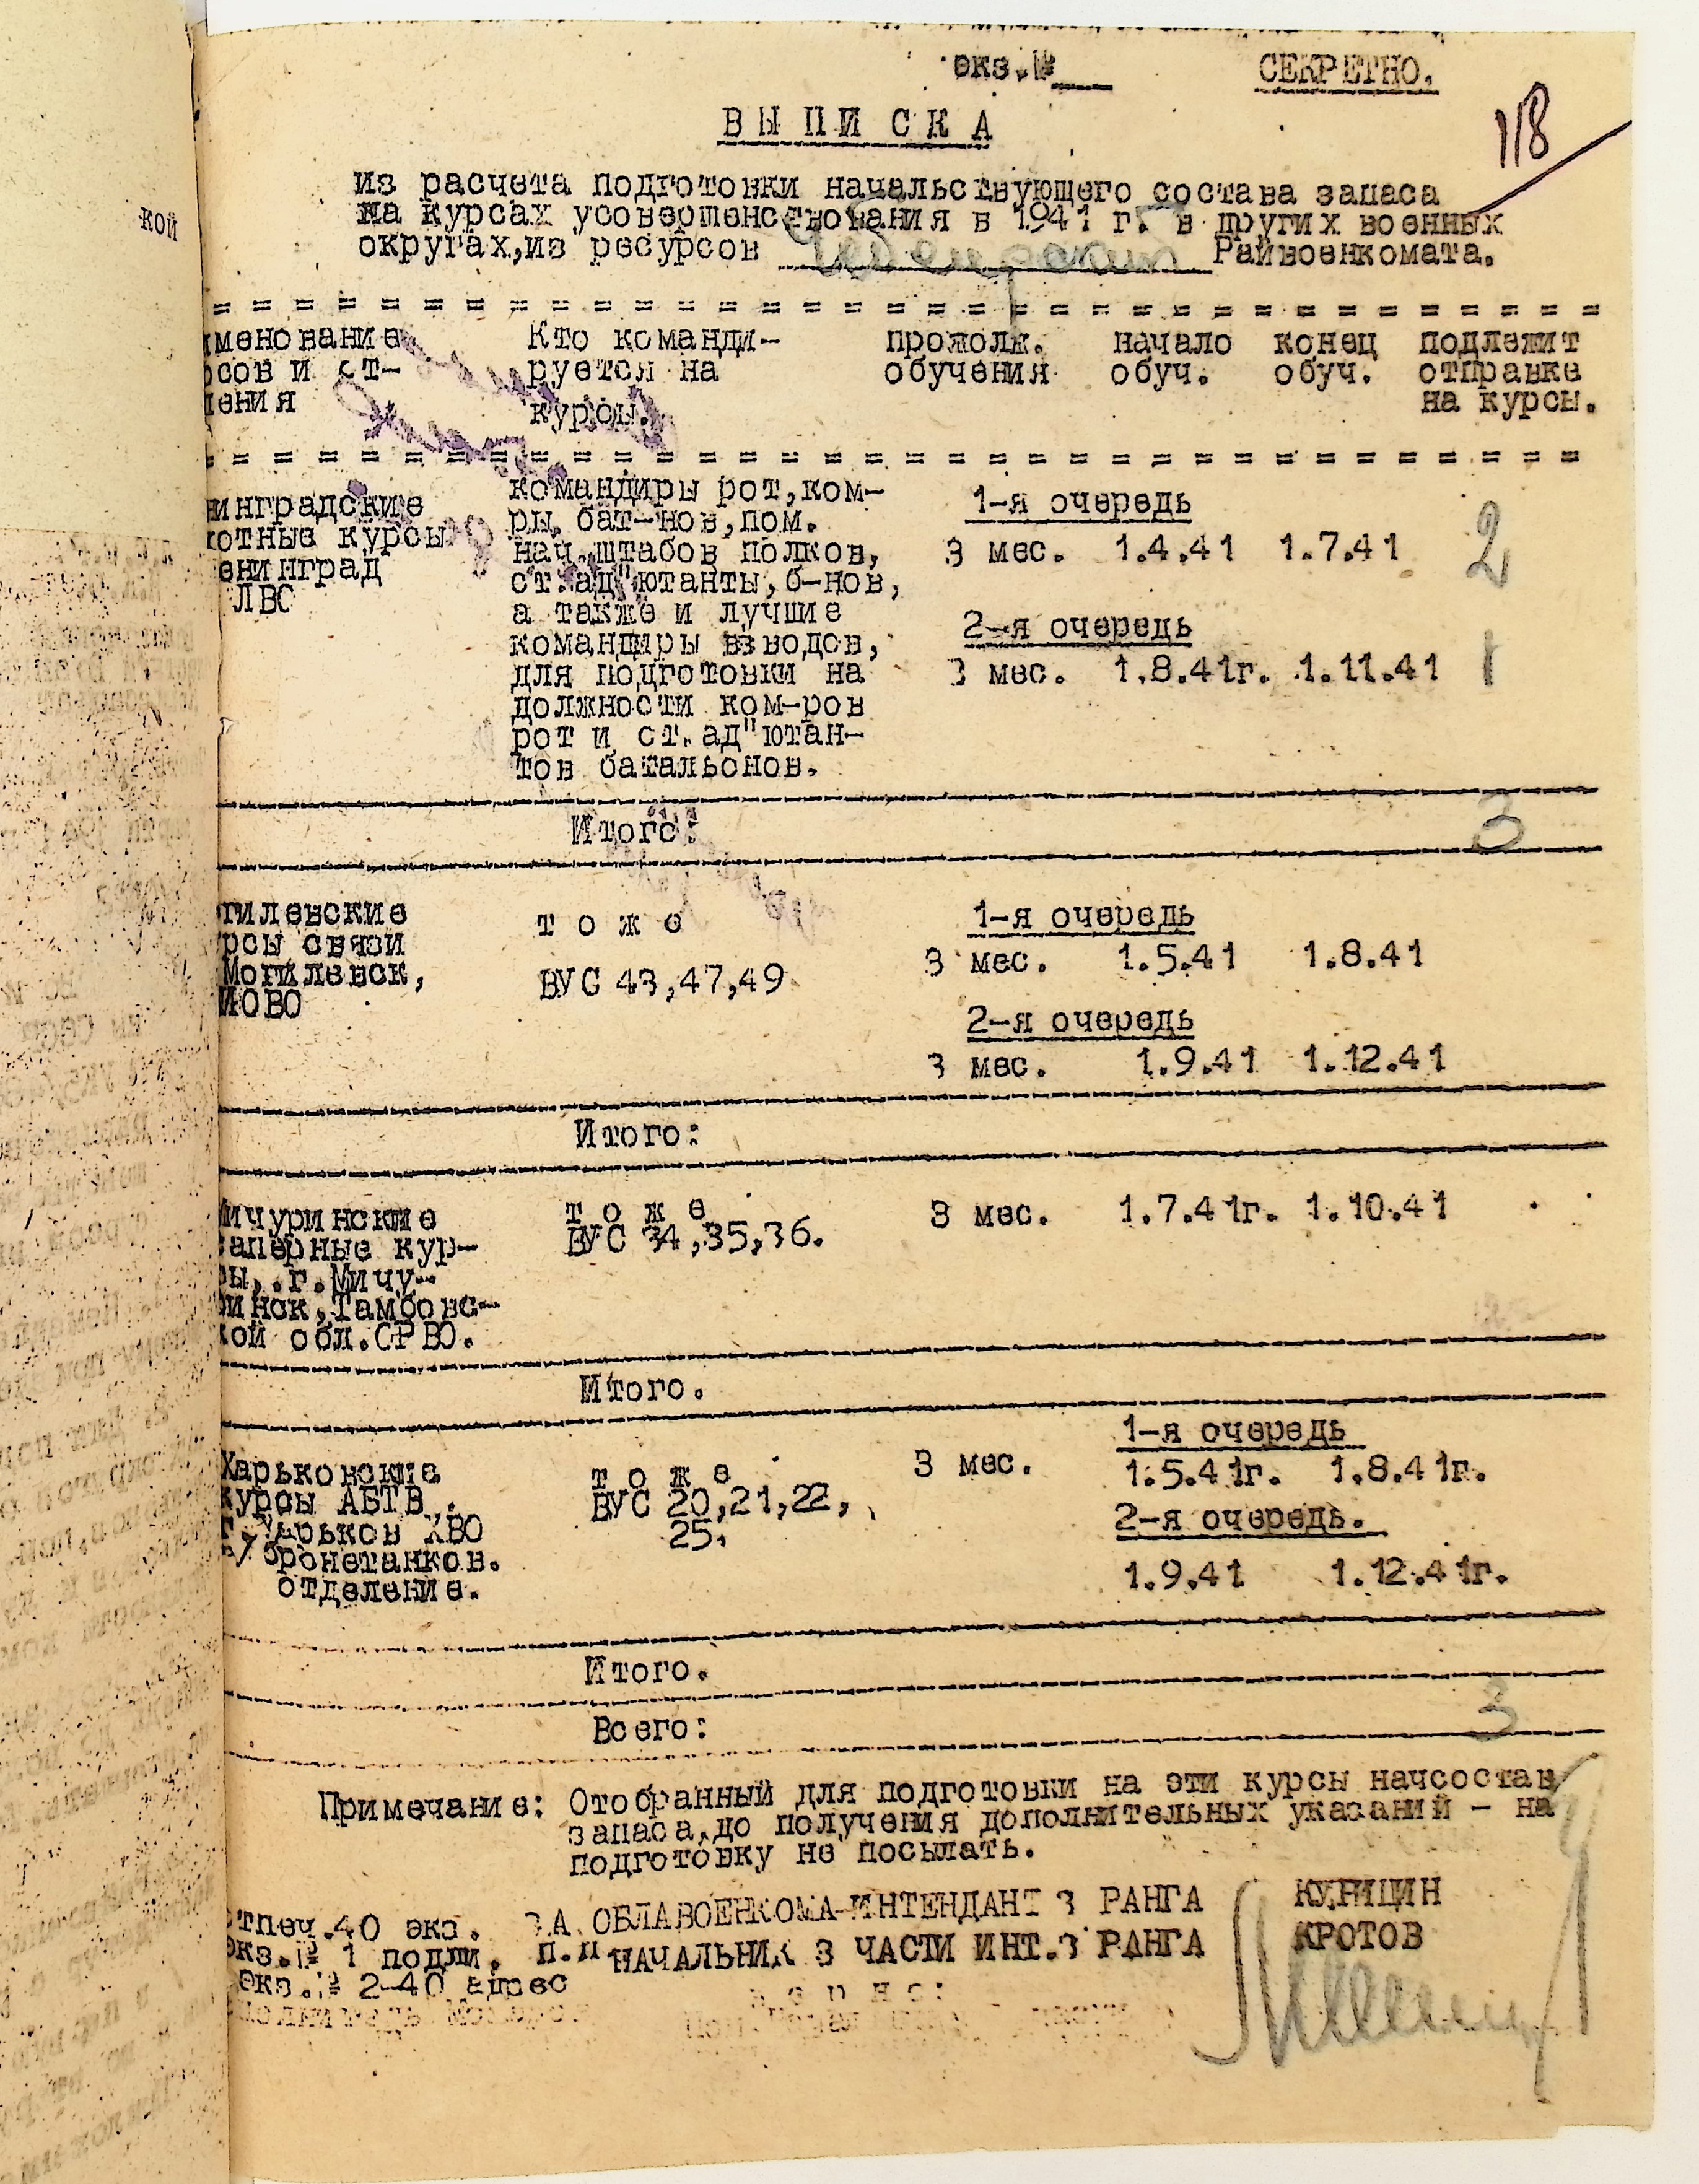 экз.№ СЕКРЕТНО.
118
ВЫПИСКА
из расчета подготовки начальствующего состава запаса
на курсах усовершенствования в 1941 г. в других военных
округах,из ресурсов Райвоенкомата.
кой
именование Кто команди- продолж. начало конец подлежит
рсов и от- руется на обучения обуч. обуч. отправке
ления курсы. на курсы.
нинградские командиры рот,ком-
хотные курсы ры бат-нов,пом. 1-я очередь 2
енинград нач.штабов полков, 3 мес. 1.4.41 1.7.41
ЛВО ст.ад"ютанты,б-нов,
а также и лучшие 2-я очередь
командиры взводов,
для подготовки на 3 мес. 1.8.41г. 1.11.41 1
должности ком-ров
рот и ст.ад"ютан-
тов батальонов.
Итого: 3
гилевские т о ж е 1-я очередь
рсы связи 3 мес. 1.5.41 1.8.41
Могилевск, ВУС 43,47,49
2-я очередь
3 мес. 1.9.41 1.12.41
Итого:
Мичуринские т о ж е 3 мес. 1.7.41г. 1.10.41
саперные кур- ВУС 34,35,36.
сы,.г.Мичу-
ринск,Тамбовс-
кой обл.ОРВО.
Итого.
1-я очередь
Харьковские т о ж е 3 мес. 1.5.41г. 1.8.41г.
курсы АБТВ. ВУС 20,21,22,
г.Харьков ХВО 25. 2-я очередь.
а/бронетанков.
отделение. 1.9.41 1.12.41г.
Итого.
Всего: 3
Примечание: Отобранный для подготовки на эти курсы начсостав
запаса,до получения дополнительных указаний - на
подготовку не посылать.
отпеч.40 экз. ЗА ОБЛАВОЕНКОМА-ИНТЕНДАНТ 3 РАНГА КУНИЦИН
экз.№ 1 подли. п.п НАЧАЛЬНИК 3 ЧАСТИ ИНТ.3 РАНГА КРОТОВ
экз.№ 2-40 адрес